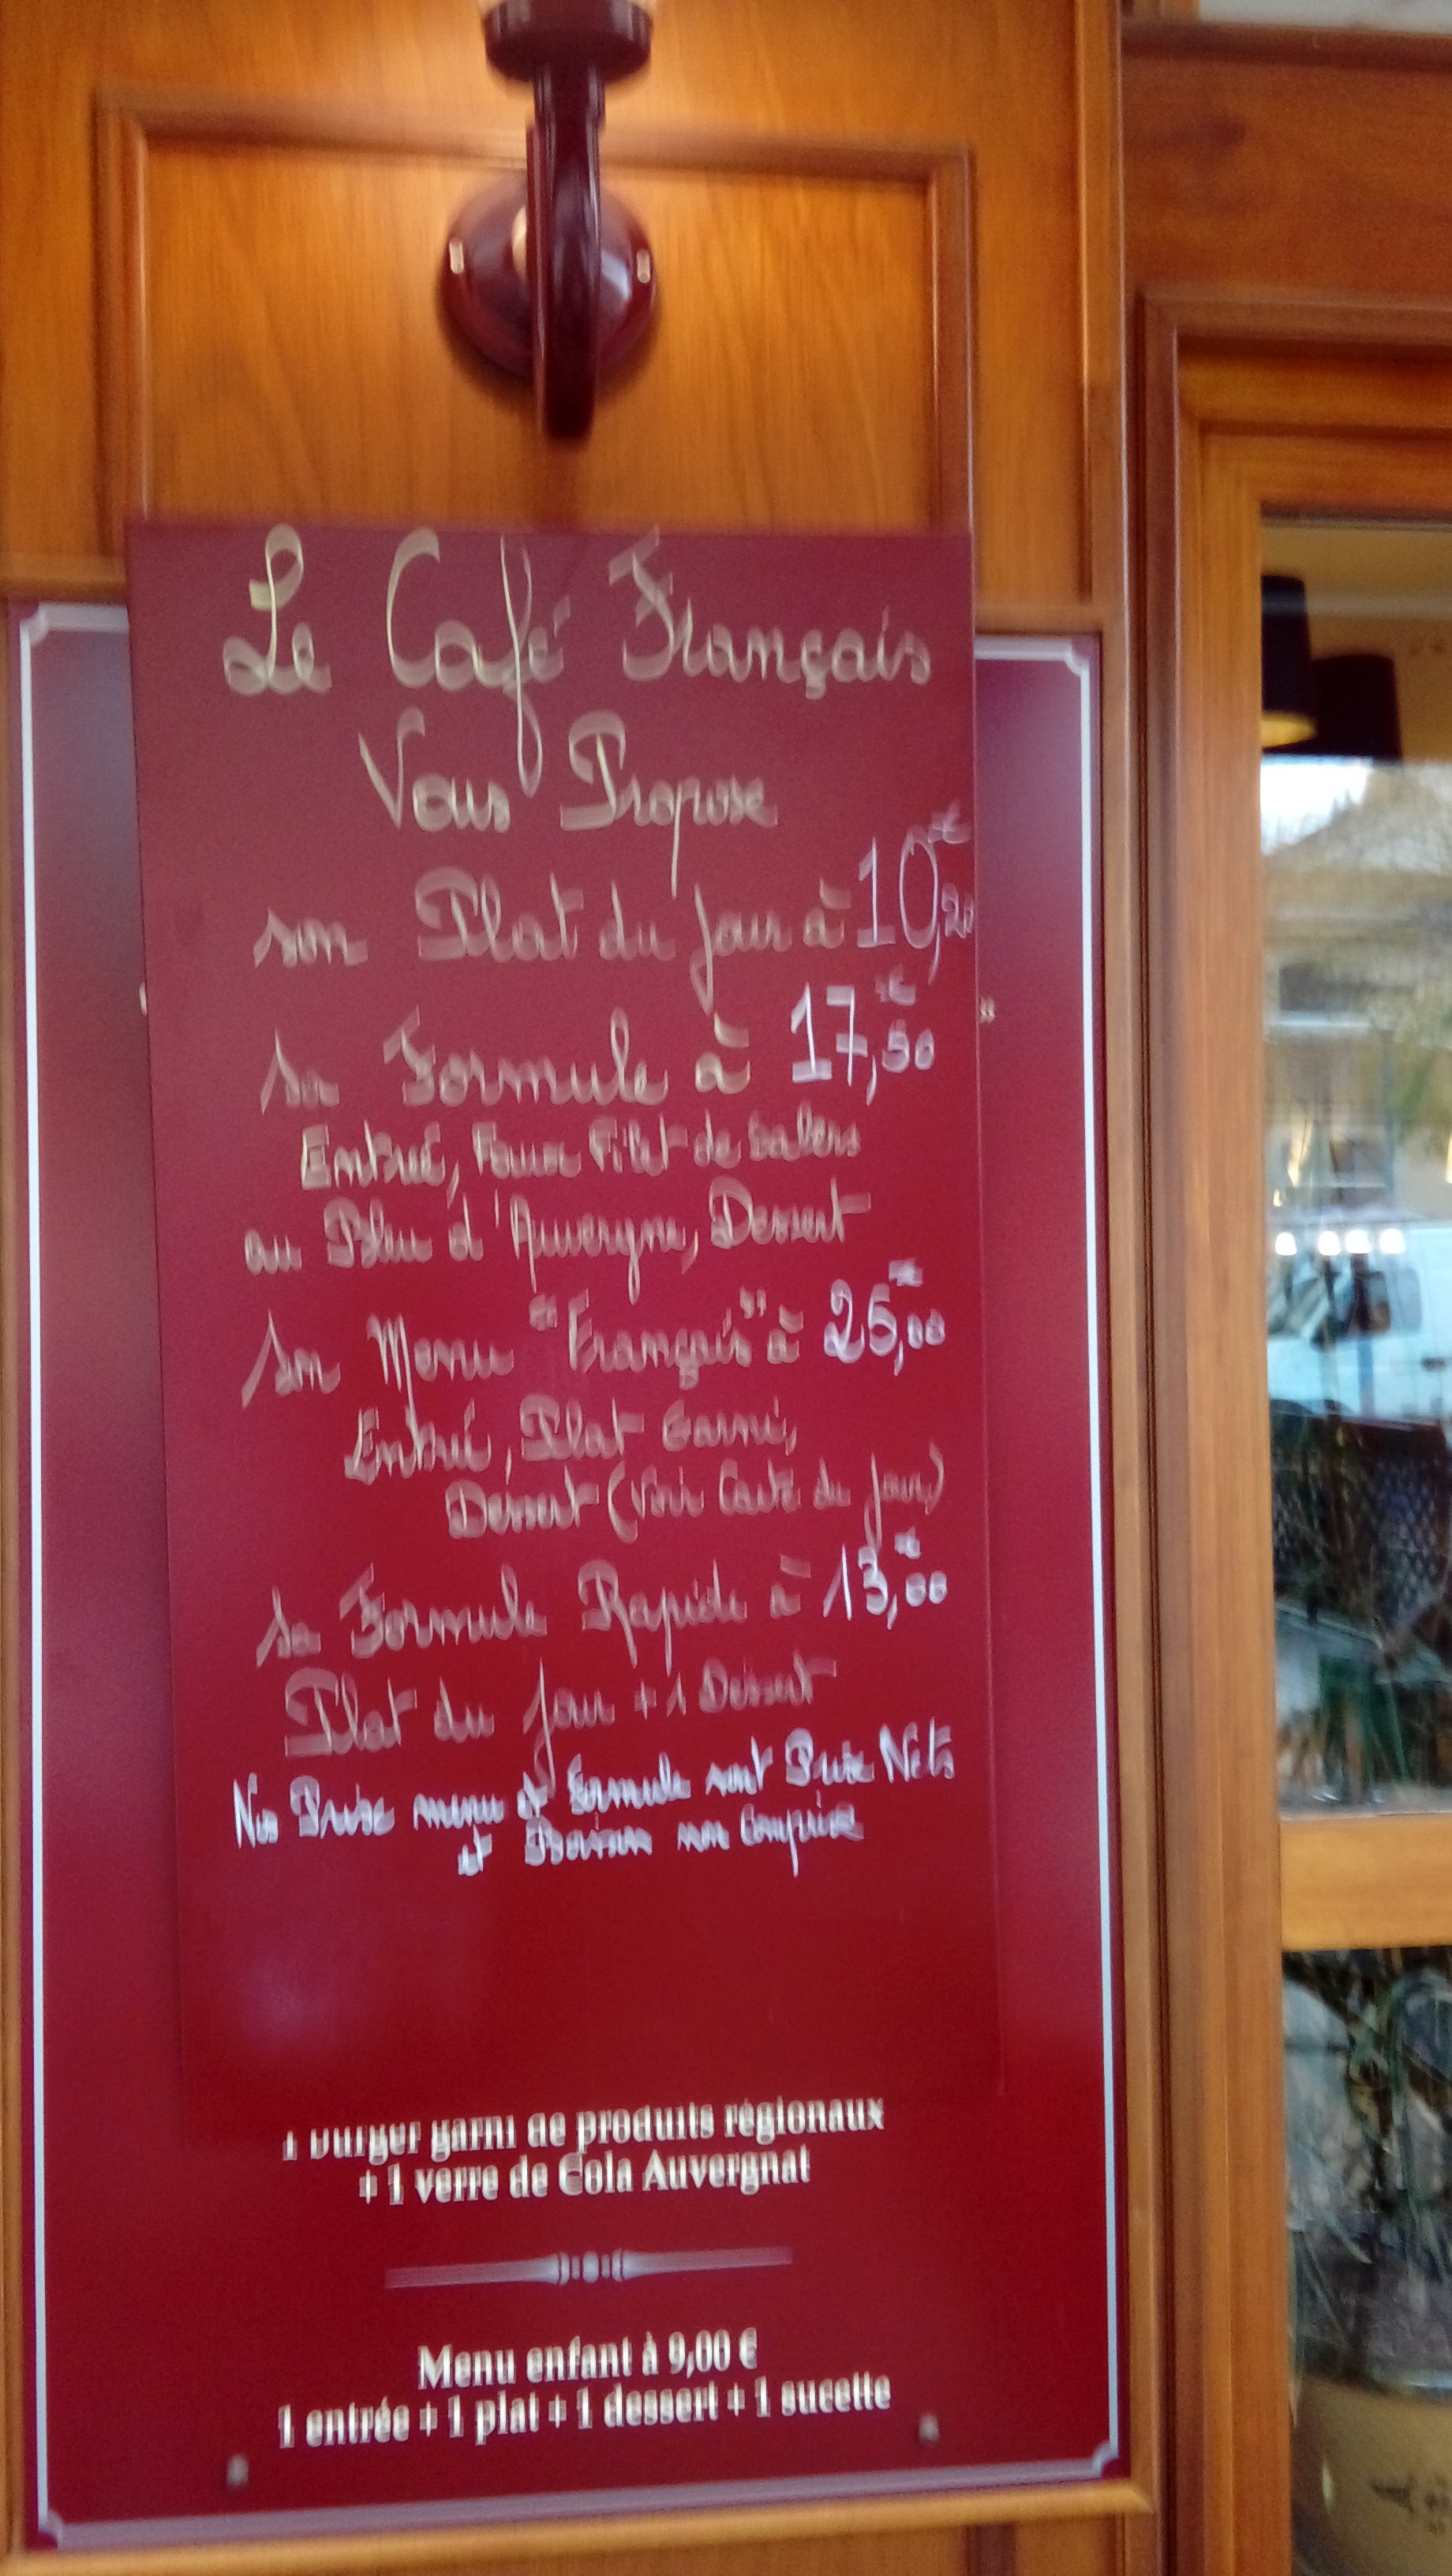 Le Café Français
Vous Propose
son Plat du jour à 10,20 €
sa Formule à 17,50 €
Entrée, Faux Filet de Salers
au Bleu d'Auvergne, Dessert
son Menu "Français" à 25,00 €
Entrée, Plat Garni,
Dessert (Voir Carte du jour)
sa Formule Rapide à 13,00 €
Plat du jour + 1 Dessert
Nos Prix menu et Formule sont Prix Nets
et Boisson non Comprise
1 burger garni de produits régionaux
+ 1 verre de Cola Auvergnat
Menu enfant à 9,00 €
1 entrée + 1 plat + 1 dessert + 1 sucette